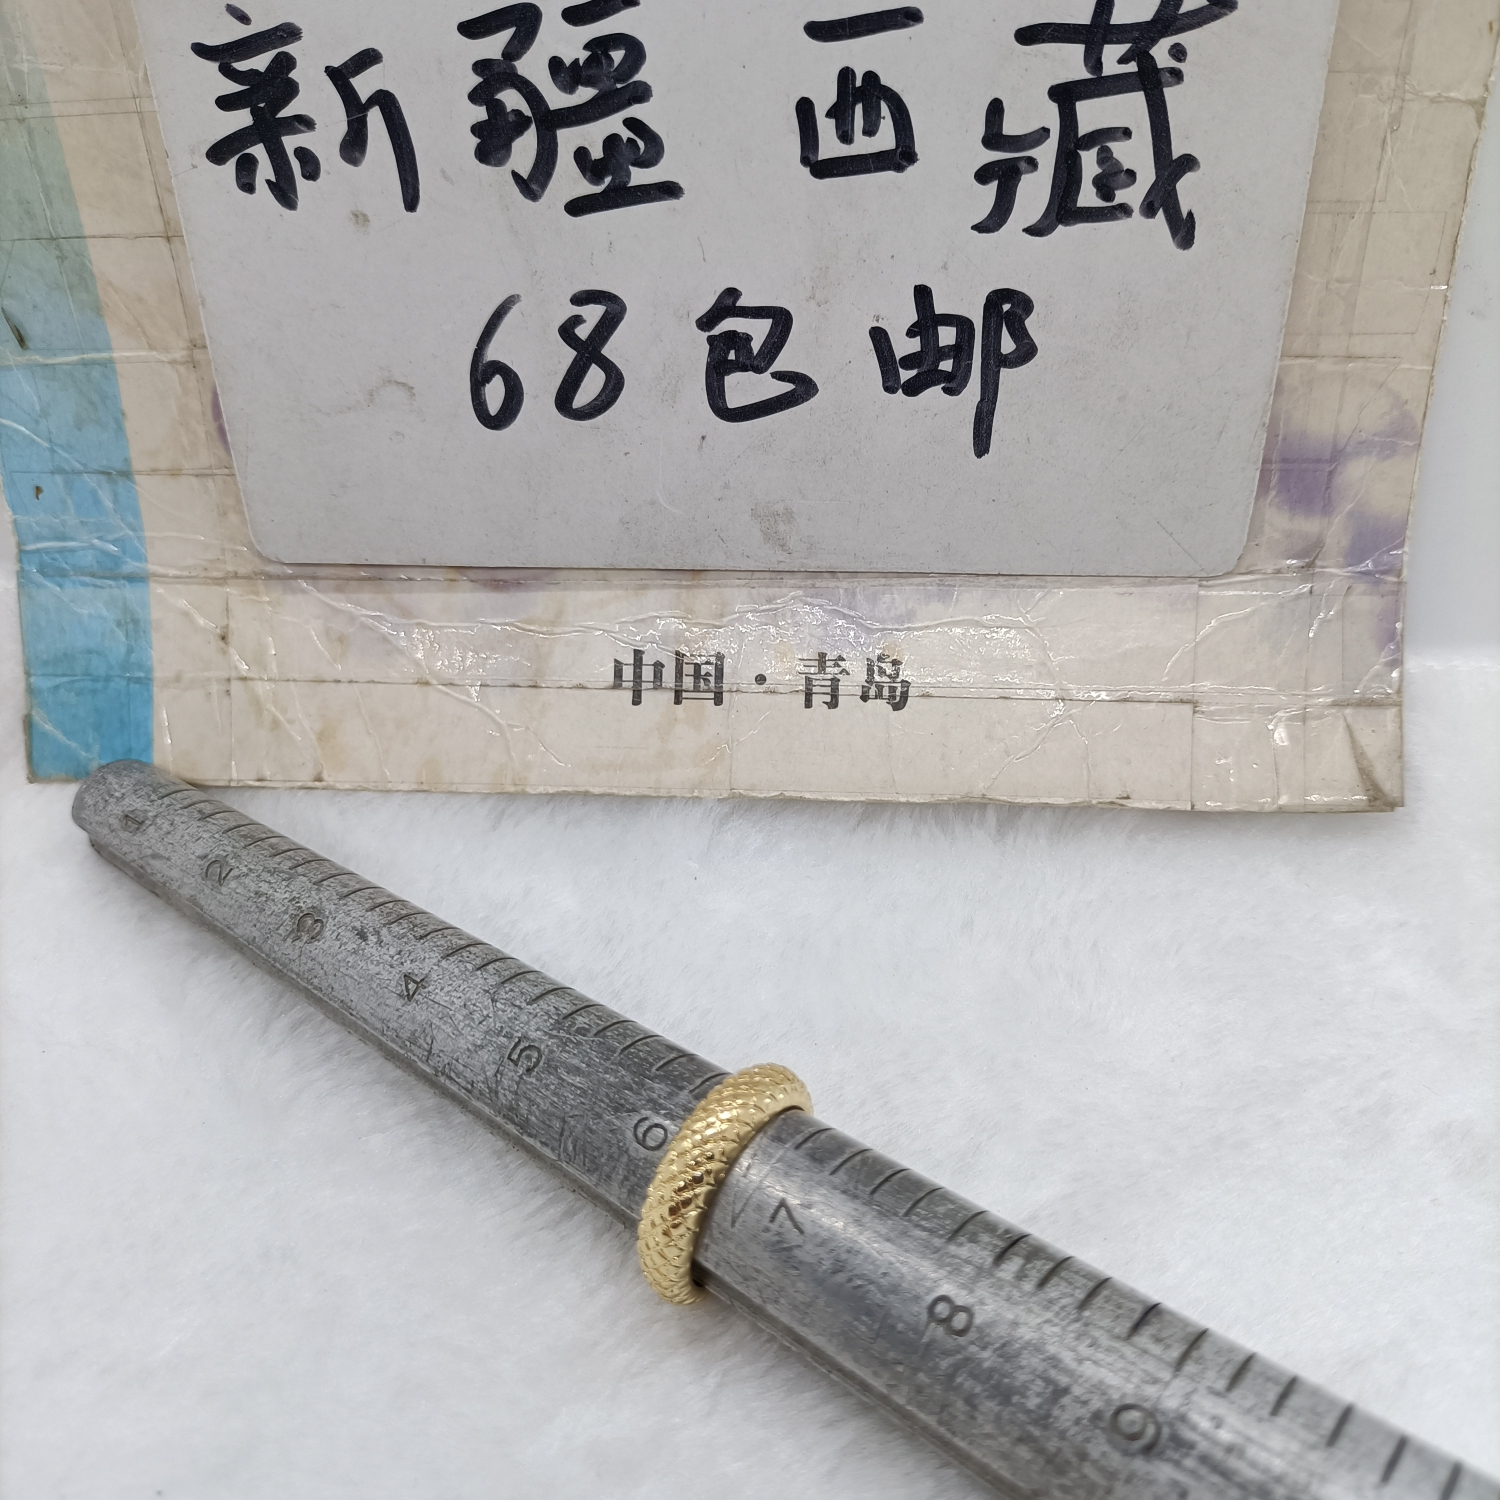 新疆 西藏
68包邮
中国·青岛
1
2
3
4
5
6
7
8
9